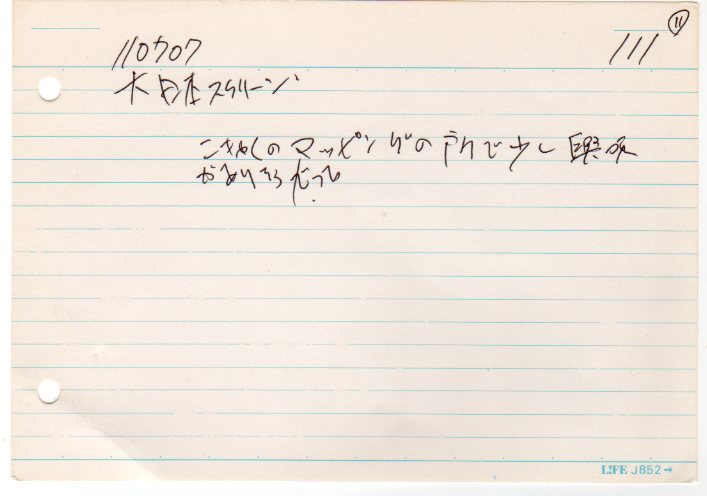 ⑪
110707
111
大日本スクリーン
このマッピングので少し興味
がありそうだった
LIFE J852→